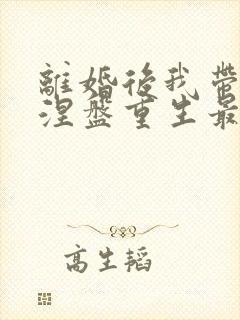 離婚後我帶
涅盤重生最
高生韜